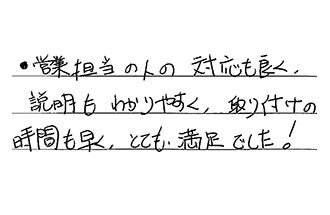 ・営業担当の人の対応も良く、
説明もわかりやすく、取り付けの
時間も早く、とても満足でした!